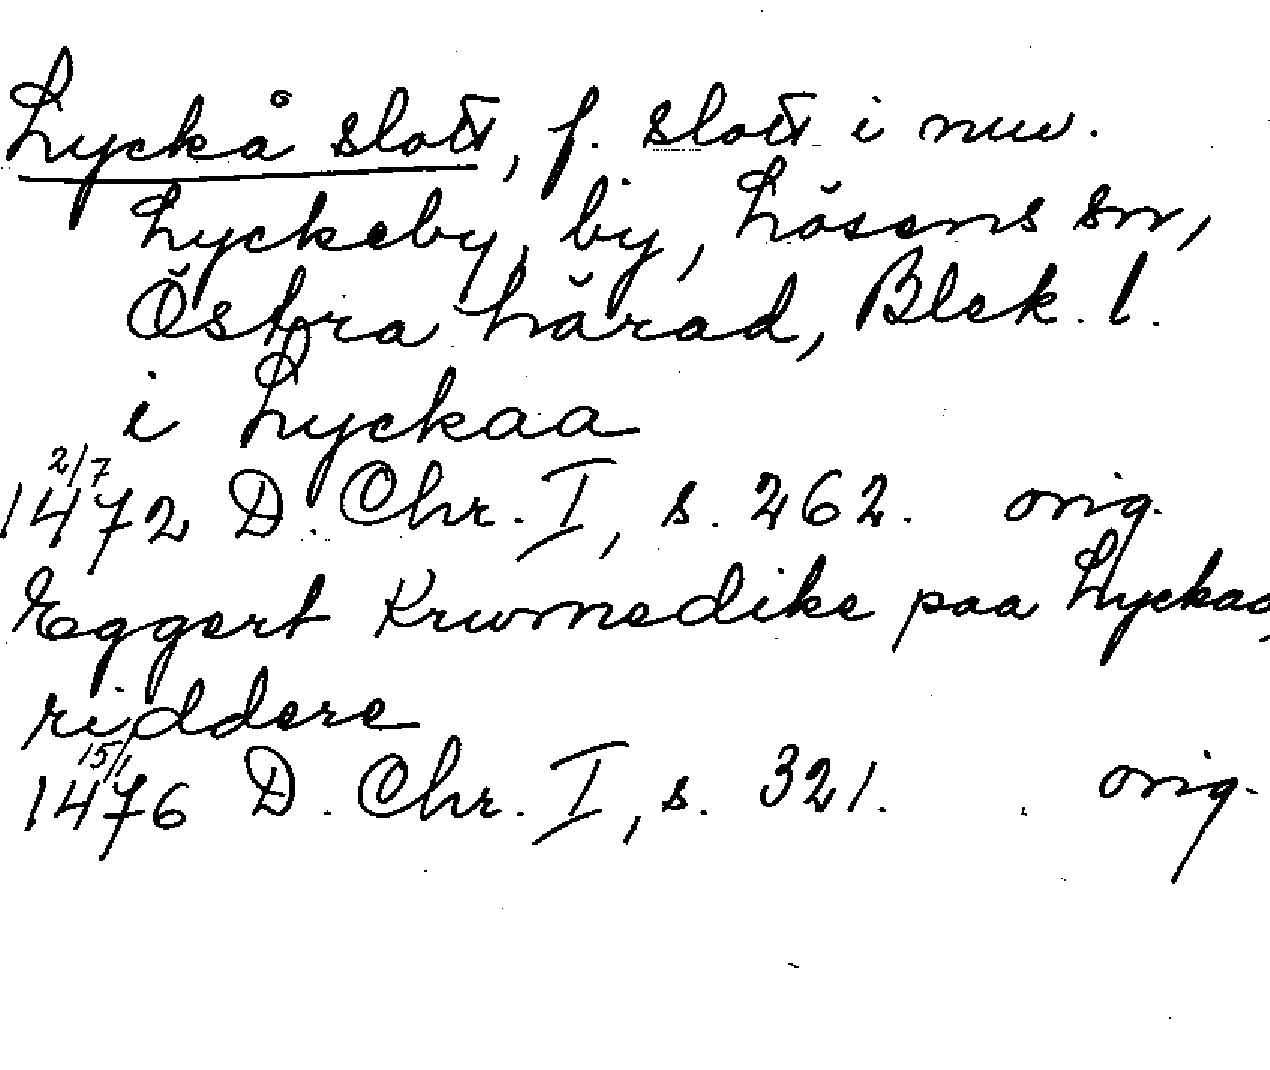 Lyckå slott, f. slott i nuv.
Lyckeby, by, Lösens sn,
Östra härad, Blek. l.
i Lyckaa
2/7
1472 D. Chr. I, s. 262. orig.
Eggert Krumedike paa Lyckaa,
riddere
15/1
1476 D. Chr. I, s. 321. orig.